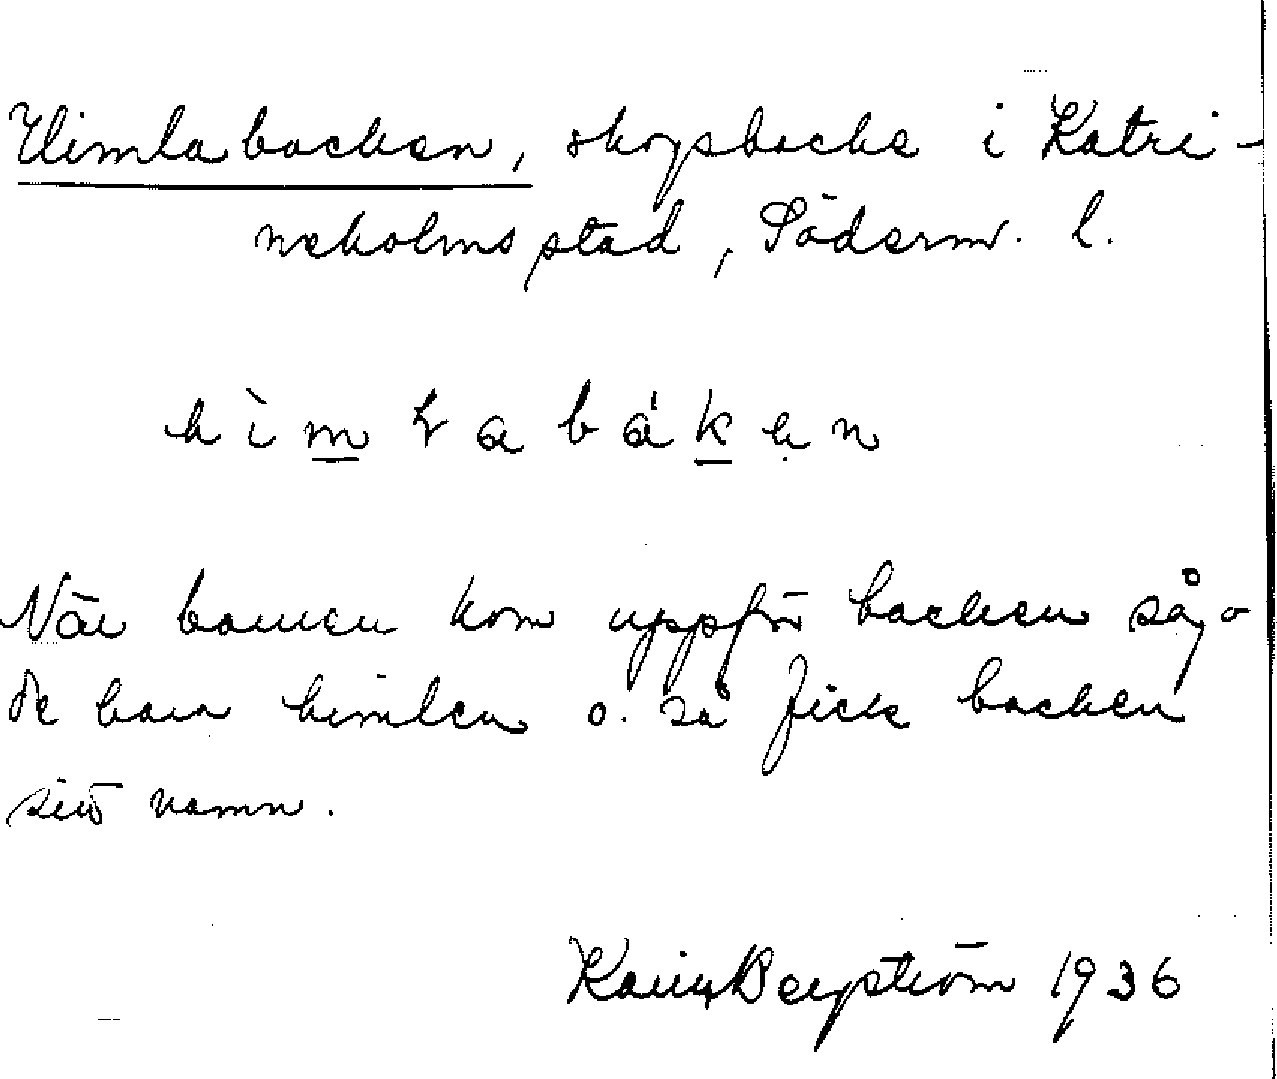 Himlabacken, skogsbacke i Katri-
neholms stad, Söderm. l.
hìmlabákẹn
När barnen kom uppför backen såg
de bara himlen o. så fick backen
sitt namn.
Karin Bergström 1936